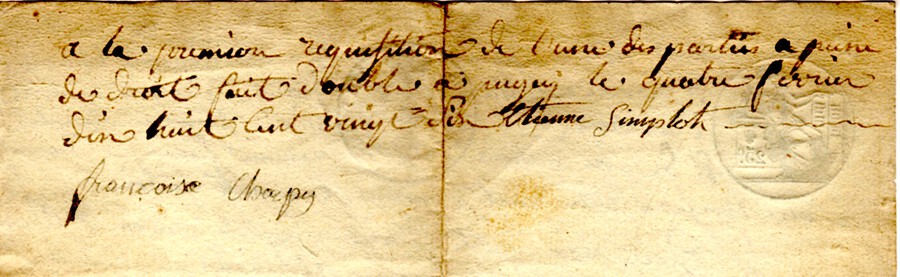 a la premion requisition de l'une des partiis a peine
de droit fait double a pugey le quatre fevrier
dix huit cent vingt six Etienne Simplot
francoise Chapuy